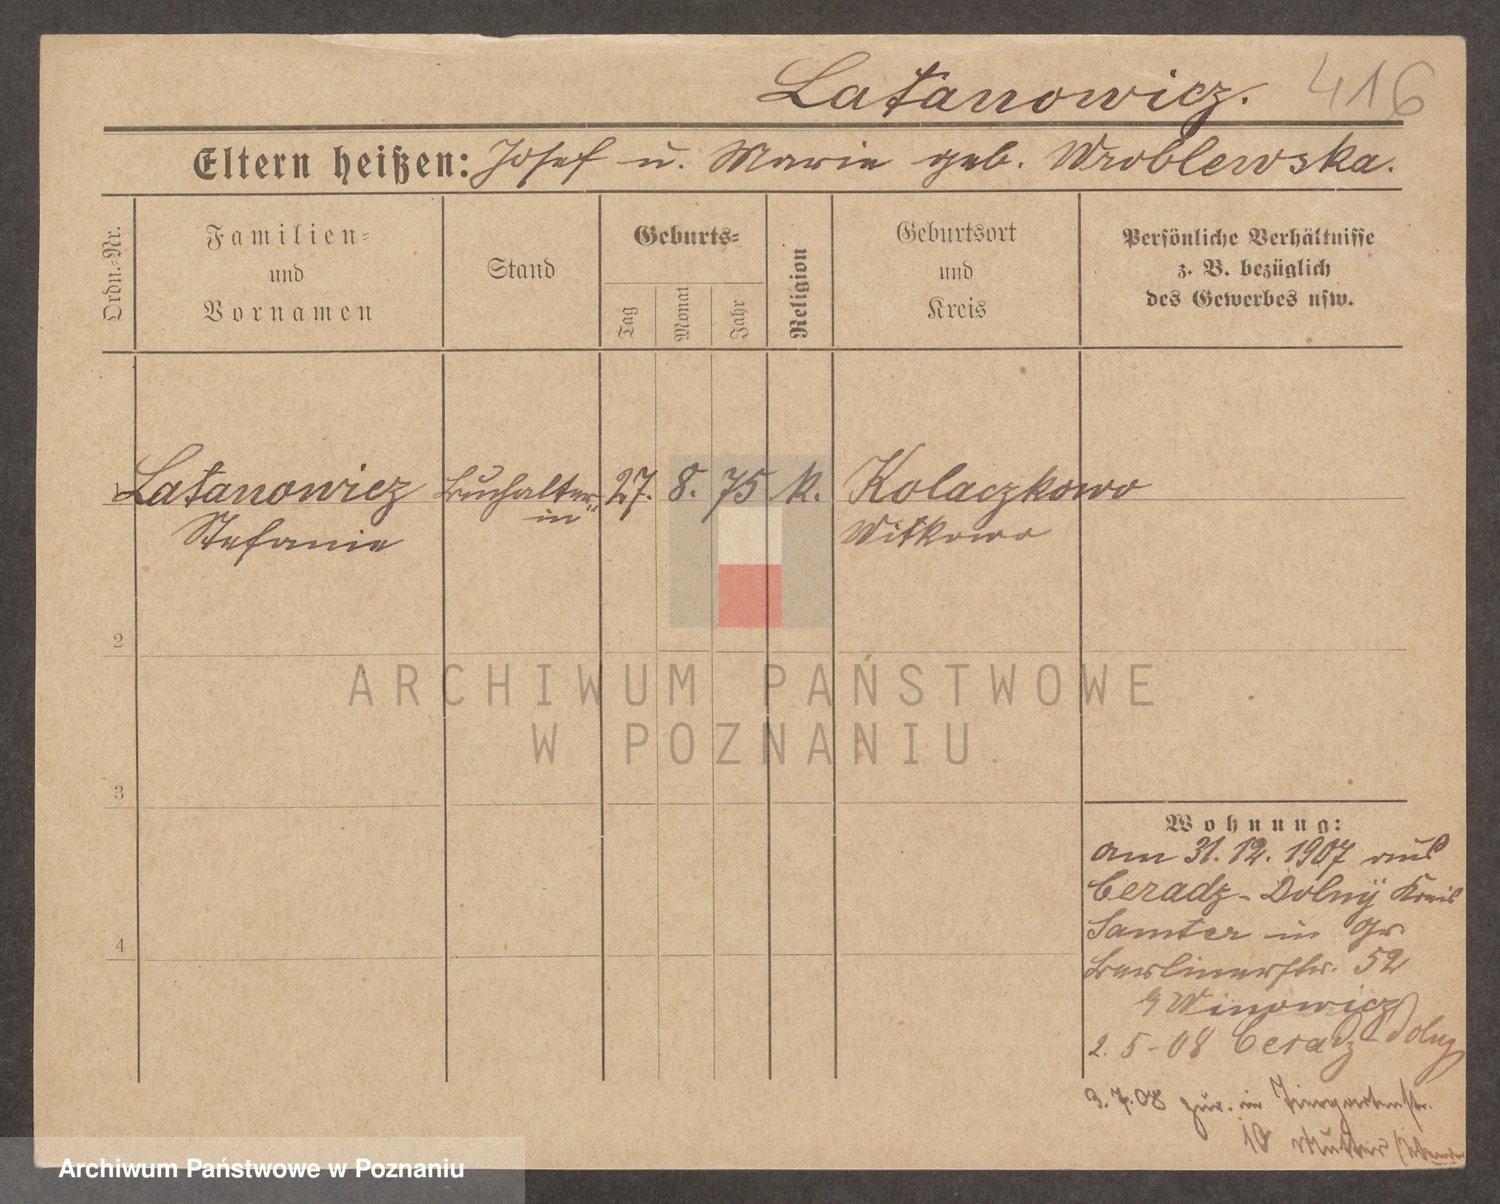 Latanowicz. 416
Eltern heißen: Josef u. Marie geb. Wroblewska.
Ordn.-Nr.
Familien-
und
Vornamen
Stand
Geburts-
Tag
Monat
Jahr
Religion
Geburtsort
und
Kreis
Persönliche Verhältnisse
z. B. bezüglich
des Gewerbes usw.
1 Latanowicz Buchalter- 27. 8. 75 K. Kolaczkowo
Stefanie in Witkowo
2
ARCHIWUM PAŃSTWOWE
W POZNANIU
3
Wohnung:
am 31. 12. 1907 aus
Ceradz-Dolny Kreis
4
Samter in Gr.
Berlinerstr. 52
Winowicz
2. 5-08 Ceradz-Dolny
3. 7. 08 zur. in Tiergartenstr.
10 Mutter
Archiwum Państwowe w Poznaniu